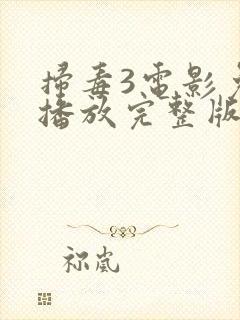 掃毒3電影
播放完整版
祢嵐